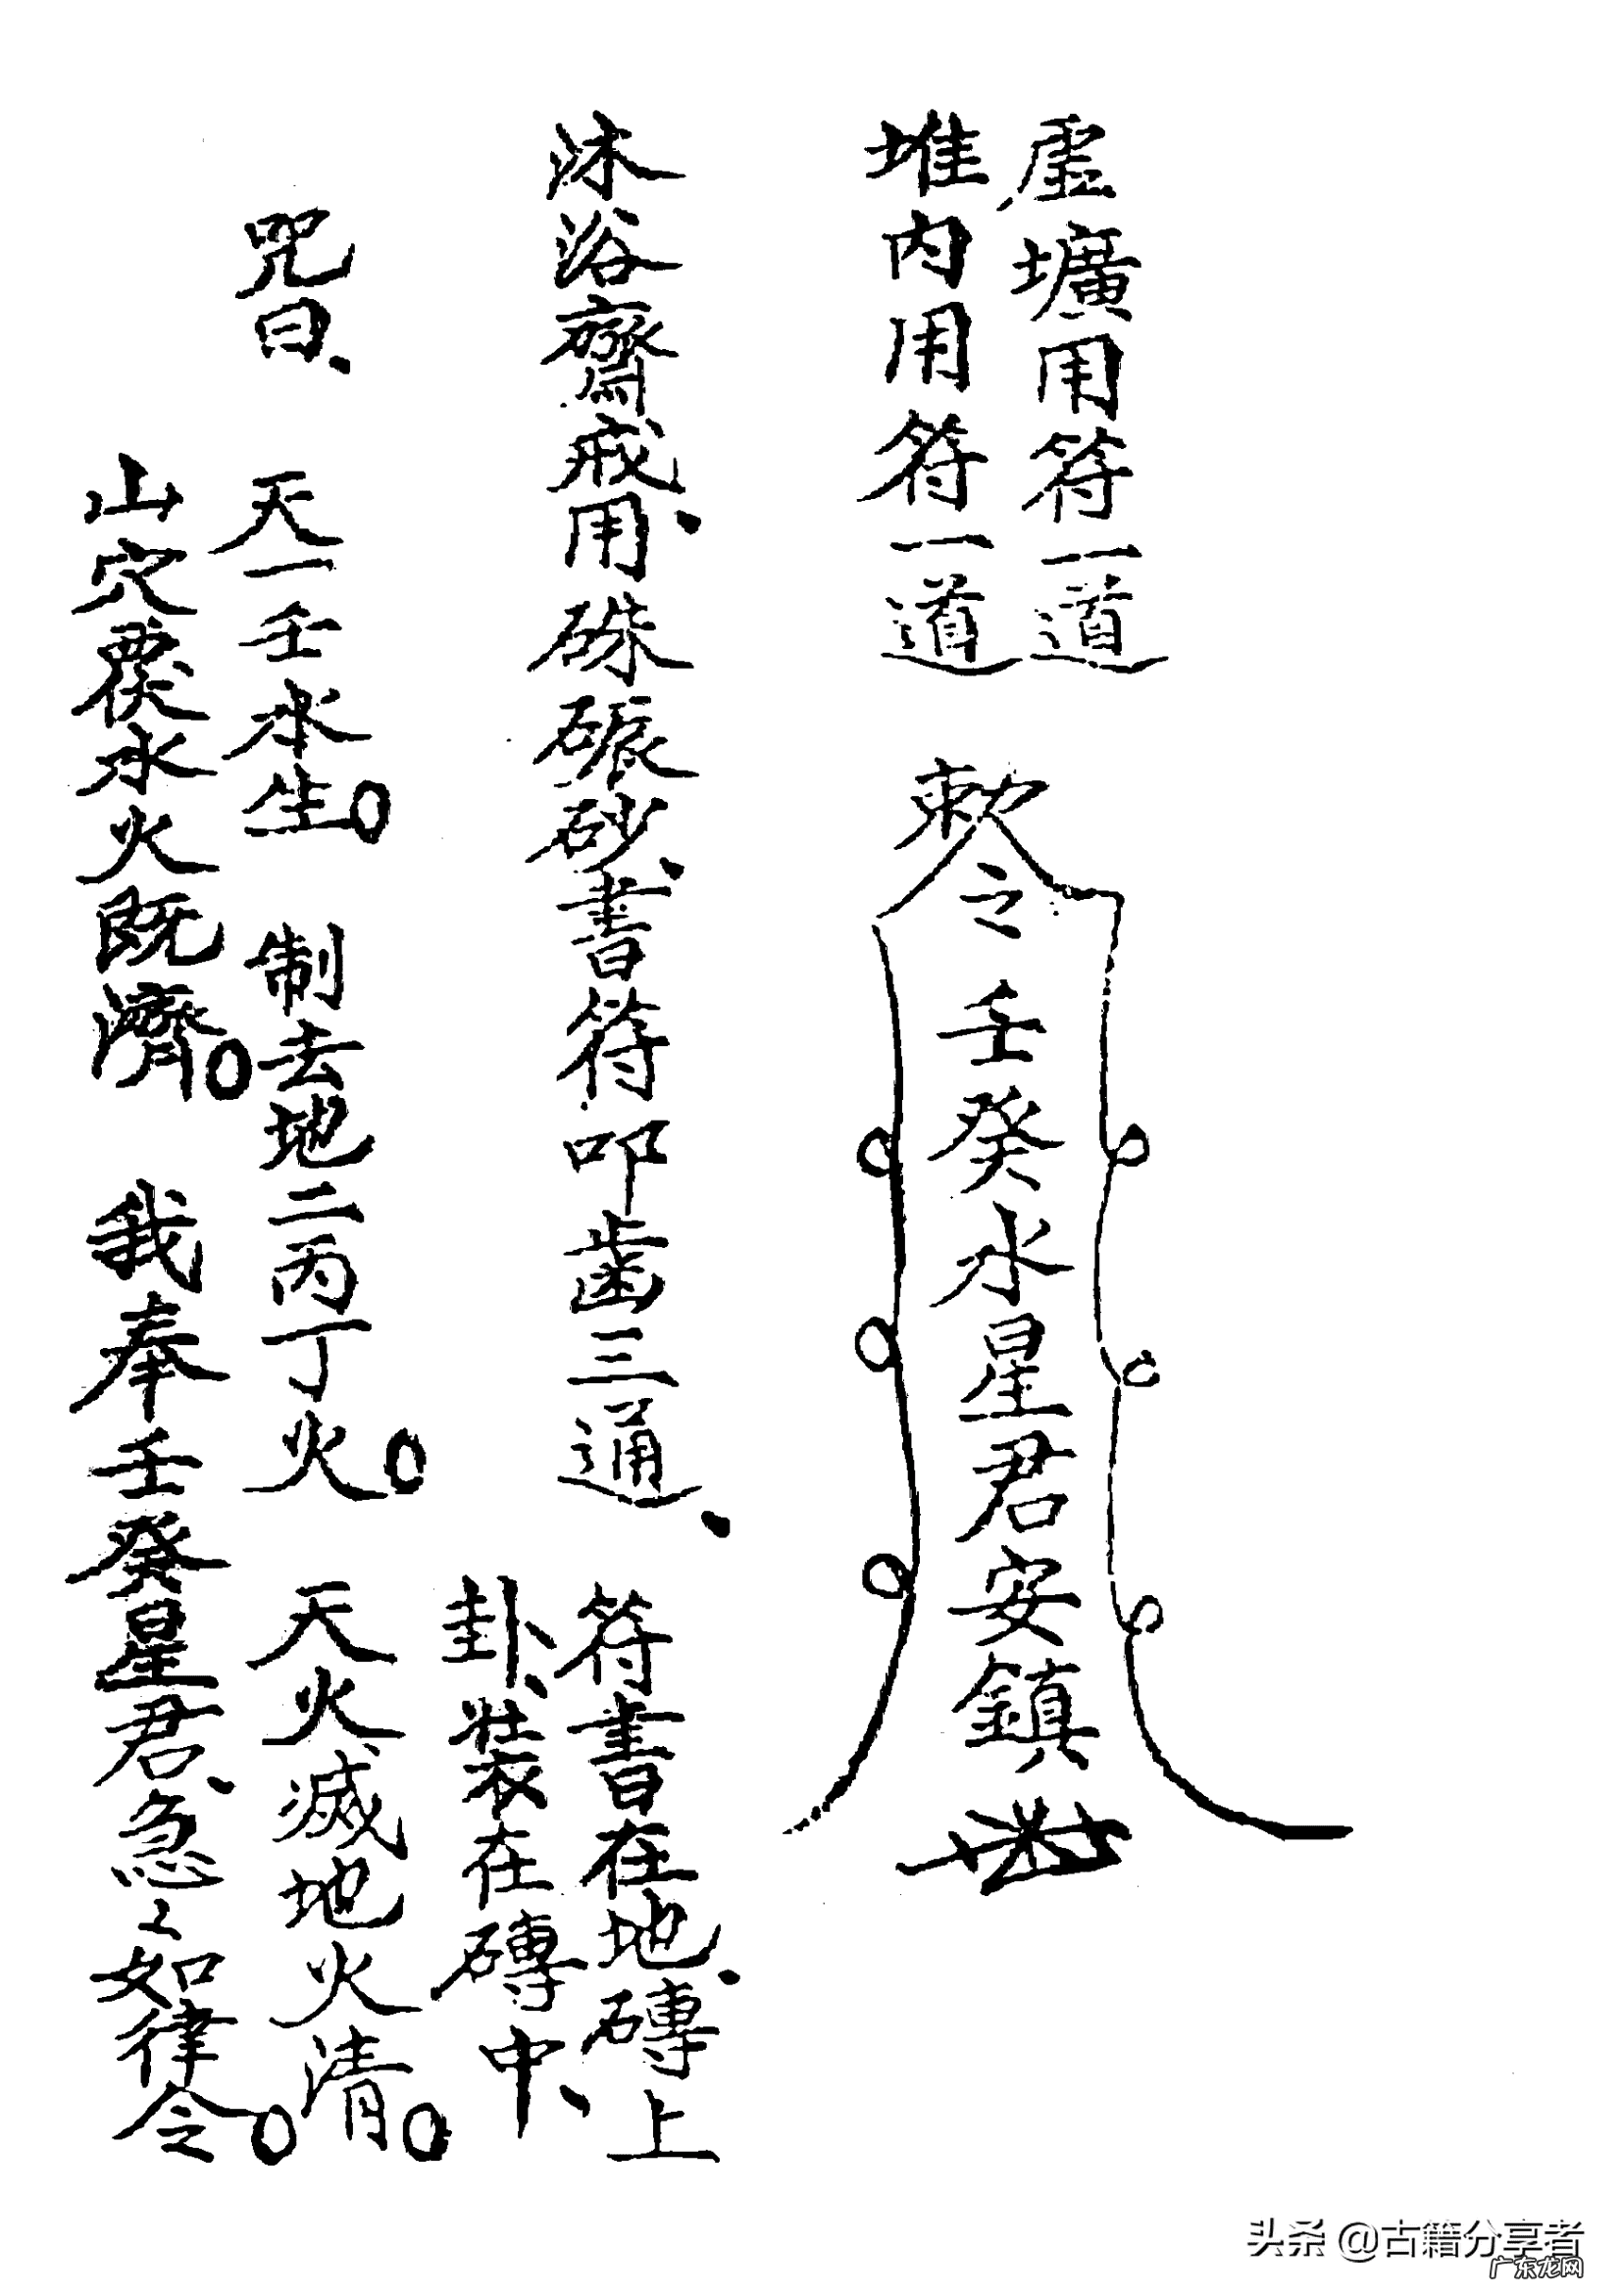 虛壙用符一道
堆内用符一道
敕令
壬癸水星君安鎮
沐浴齋戒、用硃碾砂、書符叩齒三通、
符書在地、磚上
卦、裝在磚中、
咒曰、
天一壬水生。制去地二丙丁火。天火滅地火清。
山穴覆水火既濟。我奉壬癸星君、急〻如律令。
头条 @古籍分享者
广东龙网